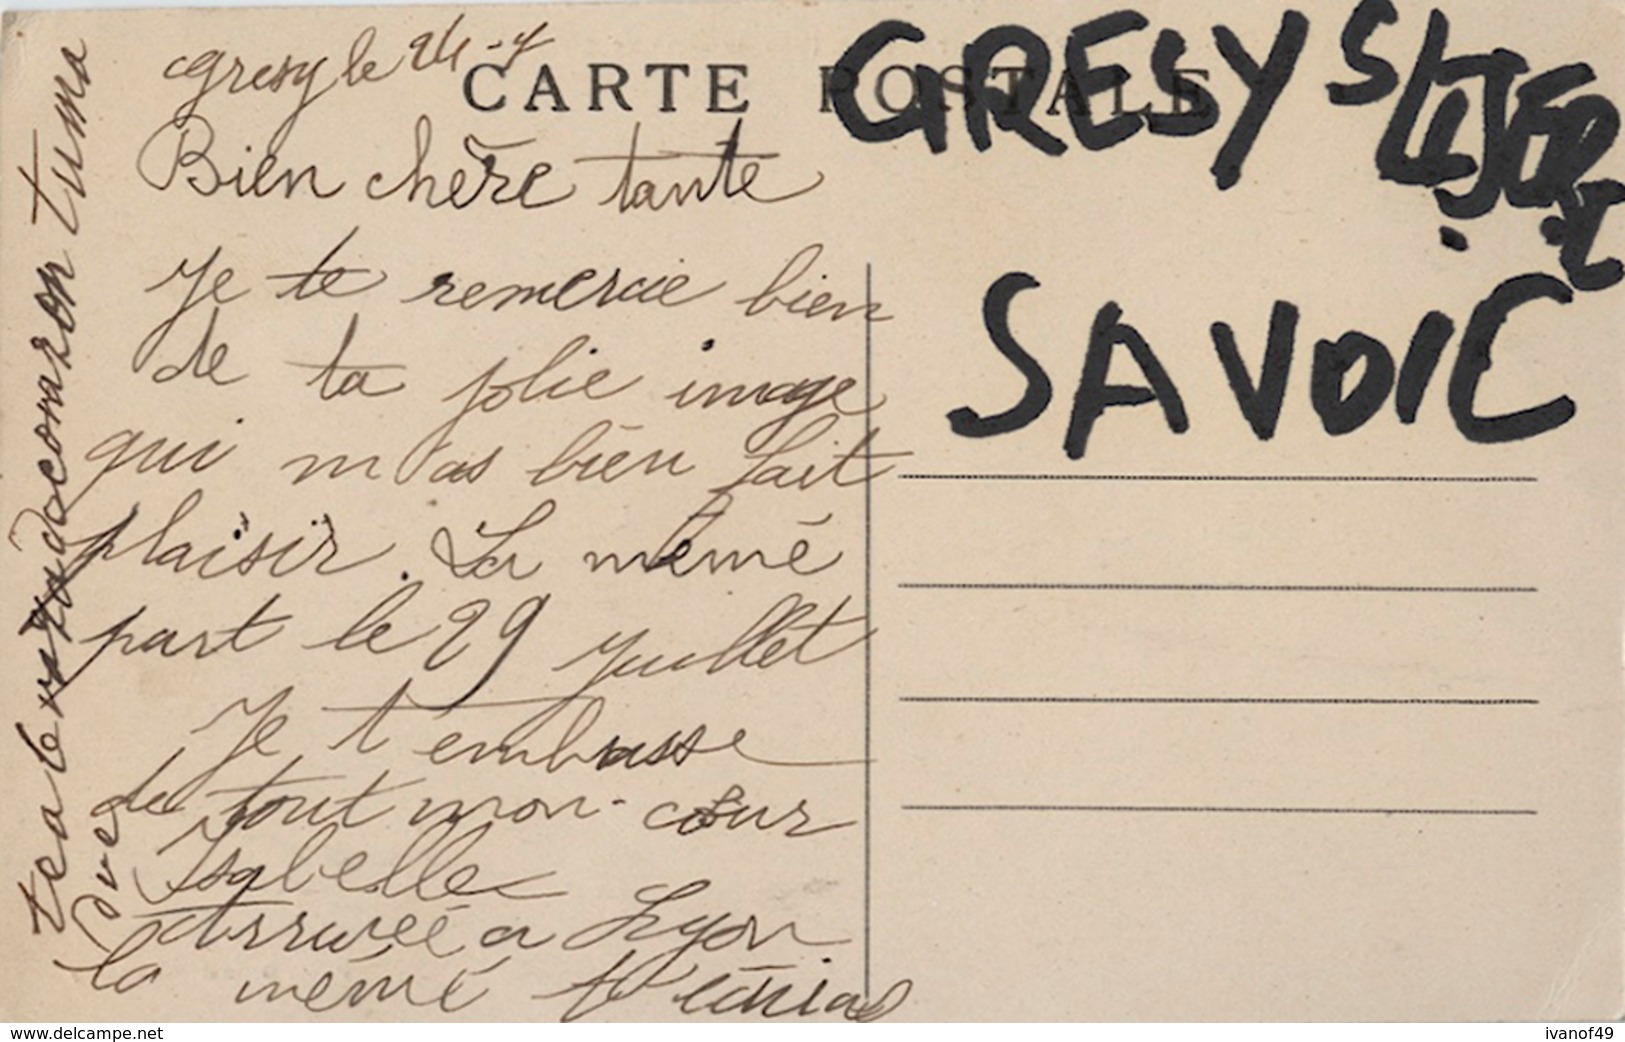 Gresy le 24-7
CARTE POSTALE
GRESY S/
SAVOIE
Bien chère tante
Je te remercie bien
de ta jolie image
qui m'as bien fait
plaisir. La mémé
part le 29 juillet
Je t embrasse
de tout mon cœur
Isabelle
arrivée a Lyon
la mémé t'écrira
www.delcampe.net
ivanof49